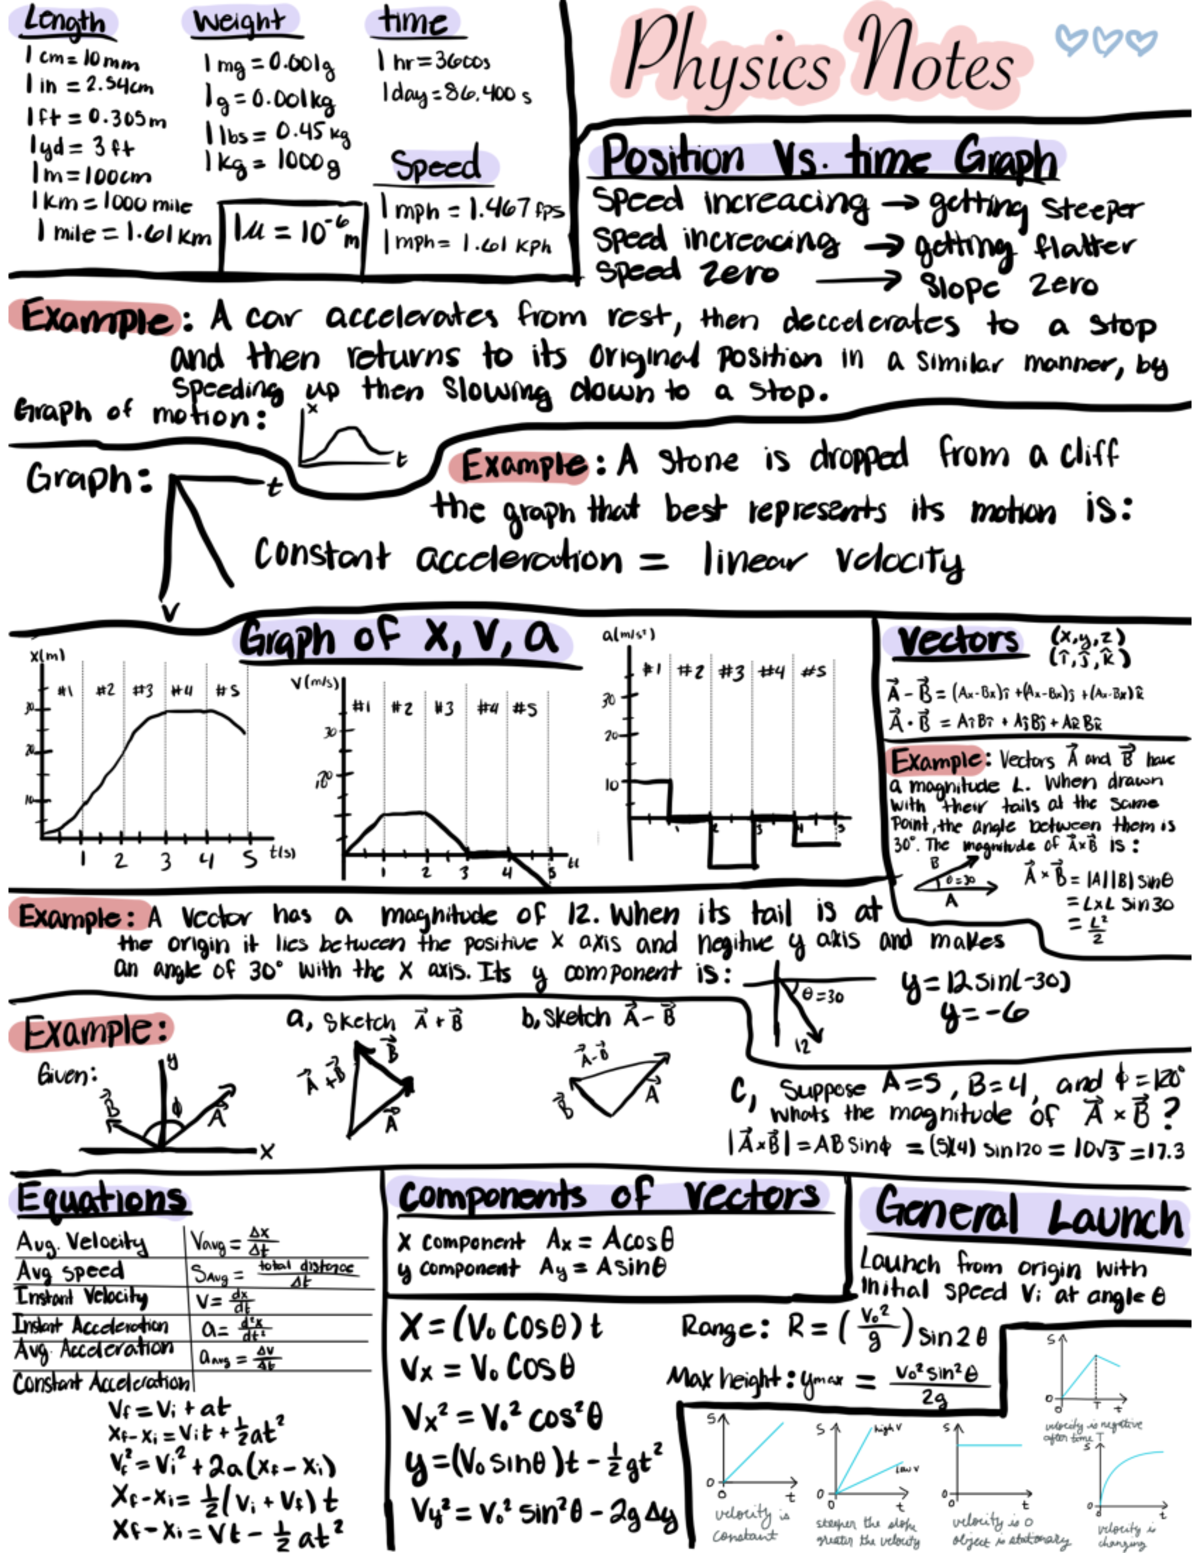 Physics Notes
Length
1 cm = 10 mm
1 in = 2.54cm
1 ft = 0.305m
1 yd = 3 ft
1 m = 100cm
1 km = 1000 mile
1 mile = 1.61 km
Weight
1 mg = 0.001g
1 g = 0.001kg
1 lbs = 0.45 kg
1 kg = 1000 g
1 u = 10⁻⁶ m
time
1 hr = 3600s
1 day = 86,400 s
Speed
1 mph = 1.467 fps
1 mph = 1.61 kph
Position Vs. time Graph
Speed increasing → getting steeper
speed increasing → getting flatter
speed zero → slope zero
Example: A car accelerates from rest, then deccelerates to a stop
and then returns to its original position in a similar manner, by
speeding up then slowing down to a stop.
Graph of motion:
x
t
Graph:
t
v
Example: A stone is dropped from a cliff
the graph that best represents its motion is:
Constant acceleration = linear velocity
Graph of x, v, a
x(m)
#1 #2 #3 #4 #5
30
20
10
1 2 3 4 5 t(s)
V(m/s)
#1 #2 #3 #4 #5
30
1 2 3 4 5
a(m/s²)
#1 #2 #3 #4 #5
30
20
10
1 2 3 4 5
Vectors (x,y,z)
(î,ĵ,k̂)
A⃗ - B⃗ = (Ax-Bx)î + (Ax-Bx)ĵ + (Ax-Bx)k̂
A⃗ · B⃗ = Aî Bî + Aĵ Bĵ + Ak̂ Bk̂
Example: Vectors A⃗ and B⃗ have
a magnitude L. When drawn
with their tails at the same
Point, the angle between them is
30°. The magnitude of A⃗xB⃗ is:
B
θ=30
A
A⃗ × B⃗ = |A||B| sinθ
= L x L sin 30
= L²/2
Example: A vector has a magnitude of 12. When its tail is at
the origin it lies between the positive x axis and negitive y axis and makes
an angle of 30° with the x axis. Its y component is:
θ=30
12
y = 12 sin(-30)
y = -6
Example:
Given:
y
B⃗
ϕ
A⃗
x
a, Sketch A⃗ + B⃗
A⃗ + B⃗
B⃗
A⃗
b, Sketch A⃗ - B⃗
A⃗-B⃗
B⃗
A⃗
C, Suppose A=5, B=4, and ϕ=120°
whats the magnitude of A⃗ × B⃗ ?
|A⃗xB⃗| = AB sinϕ = (5)(4) sin 120 = 10√3 = 17.3
Equations
Avg. Velocity Vavg = Δx/Δt
Avg speed SAvg = total distance/Δt
Instant Velocity v = dx/dt
Instant Acceleration a = d²x/dt²
Avg. Acceleration aavg = Δv/Δt
Constant Acceleration
Vf = Vi + at
Xf-Xi = Vit + ½at²
Vf² = Vi² + 2a(Xf - Xi)
Xf-Xi = ½(Vi + Vf) t
Xf-Xi = Vt - ½ at²
Components of Vectors
X component Ax = Acosθ
y component Ay = Asinθ
X = (V₀ Cosθ) t
Vx = V₀ Cosθ
Vx² = V₀² cos²θ
y = (V₀ sinθ)t - ½gt²
Vy² = V₀² sin²θ - 2gΔy
General Launch
Launch from origin with
initial speed Vi at angle θ
Range: R = (V₀²/g) sin2θ
Max height: ymax = V₀² sin²θ/2g
S
0
0 T t
velocity is negative
after time T
S
0
0 t
velocity is
constant
S
high v
low v
0
0 t
steeper the slope
greater the velocity
S
0
0 t
velocity is 0
object is stationary
S
0
0 t
velocity is
changing